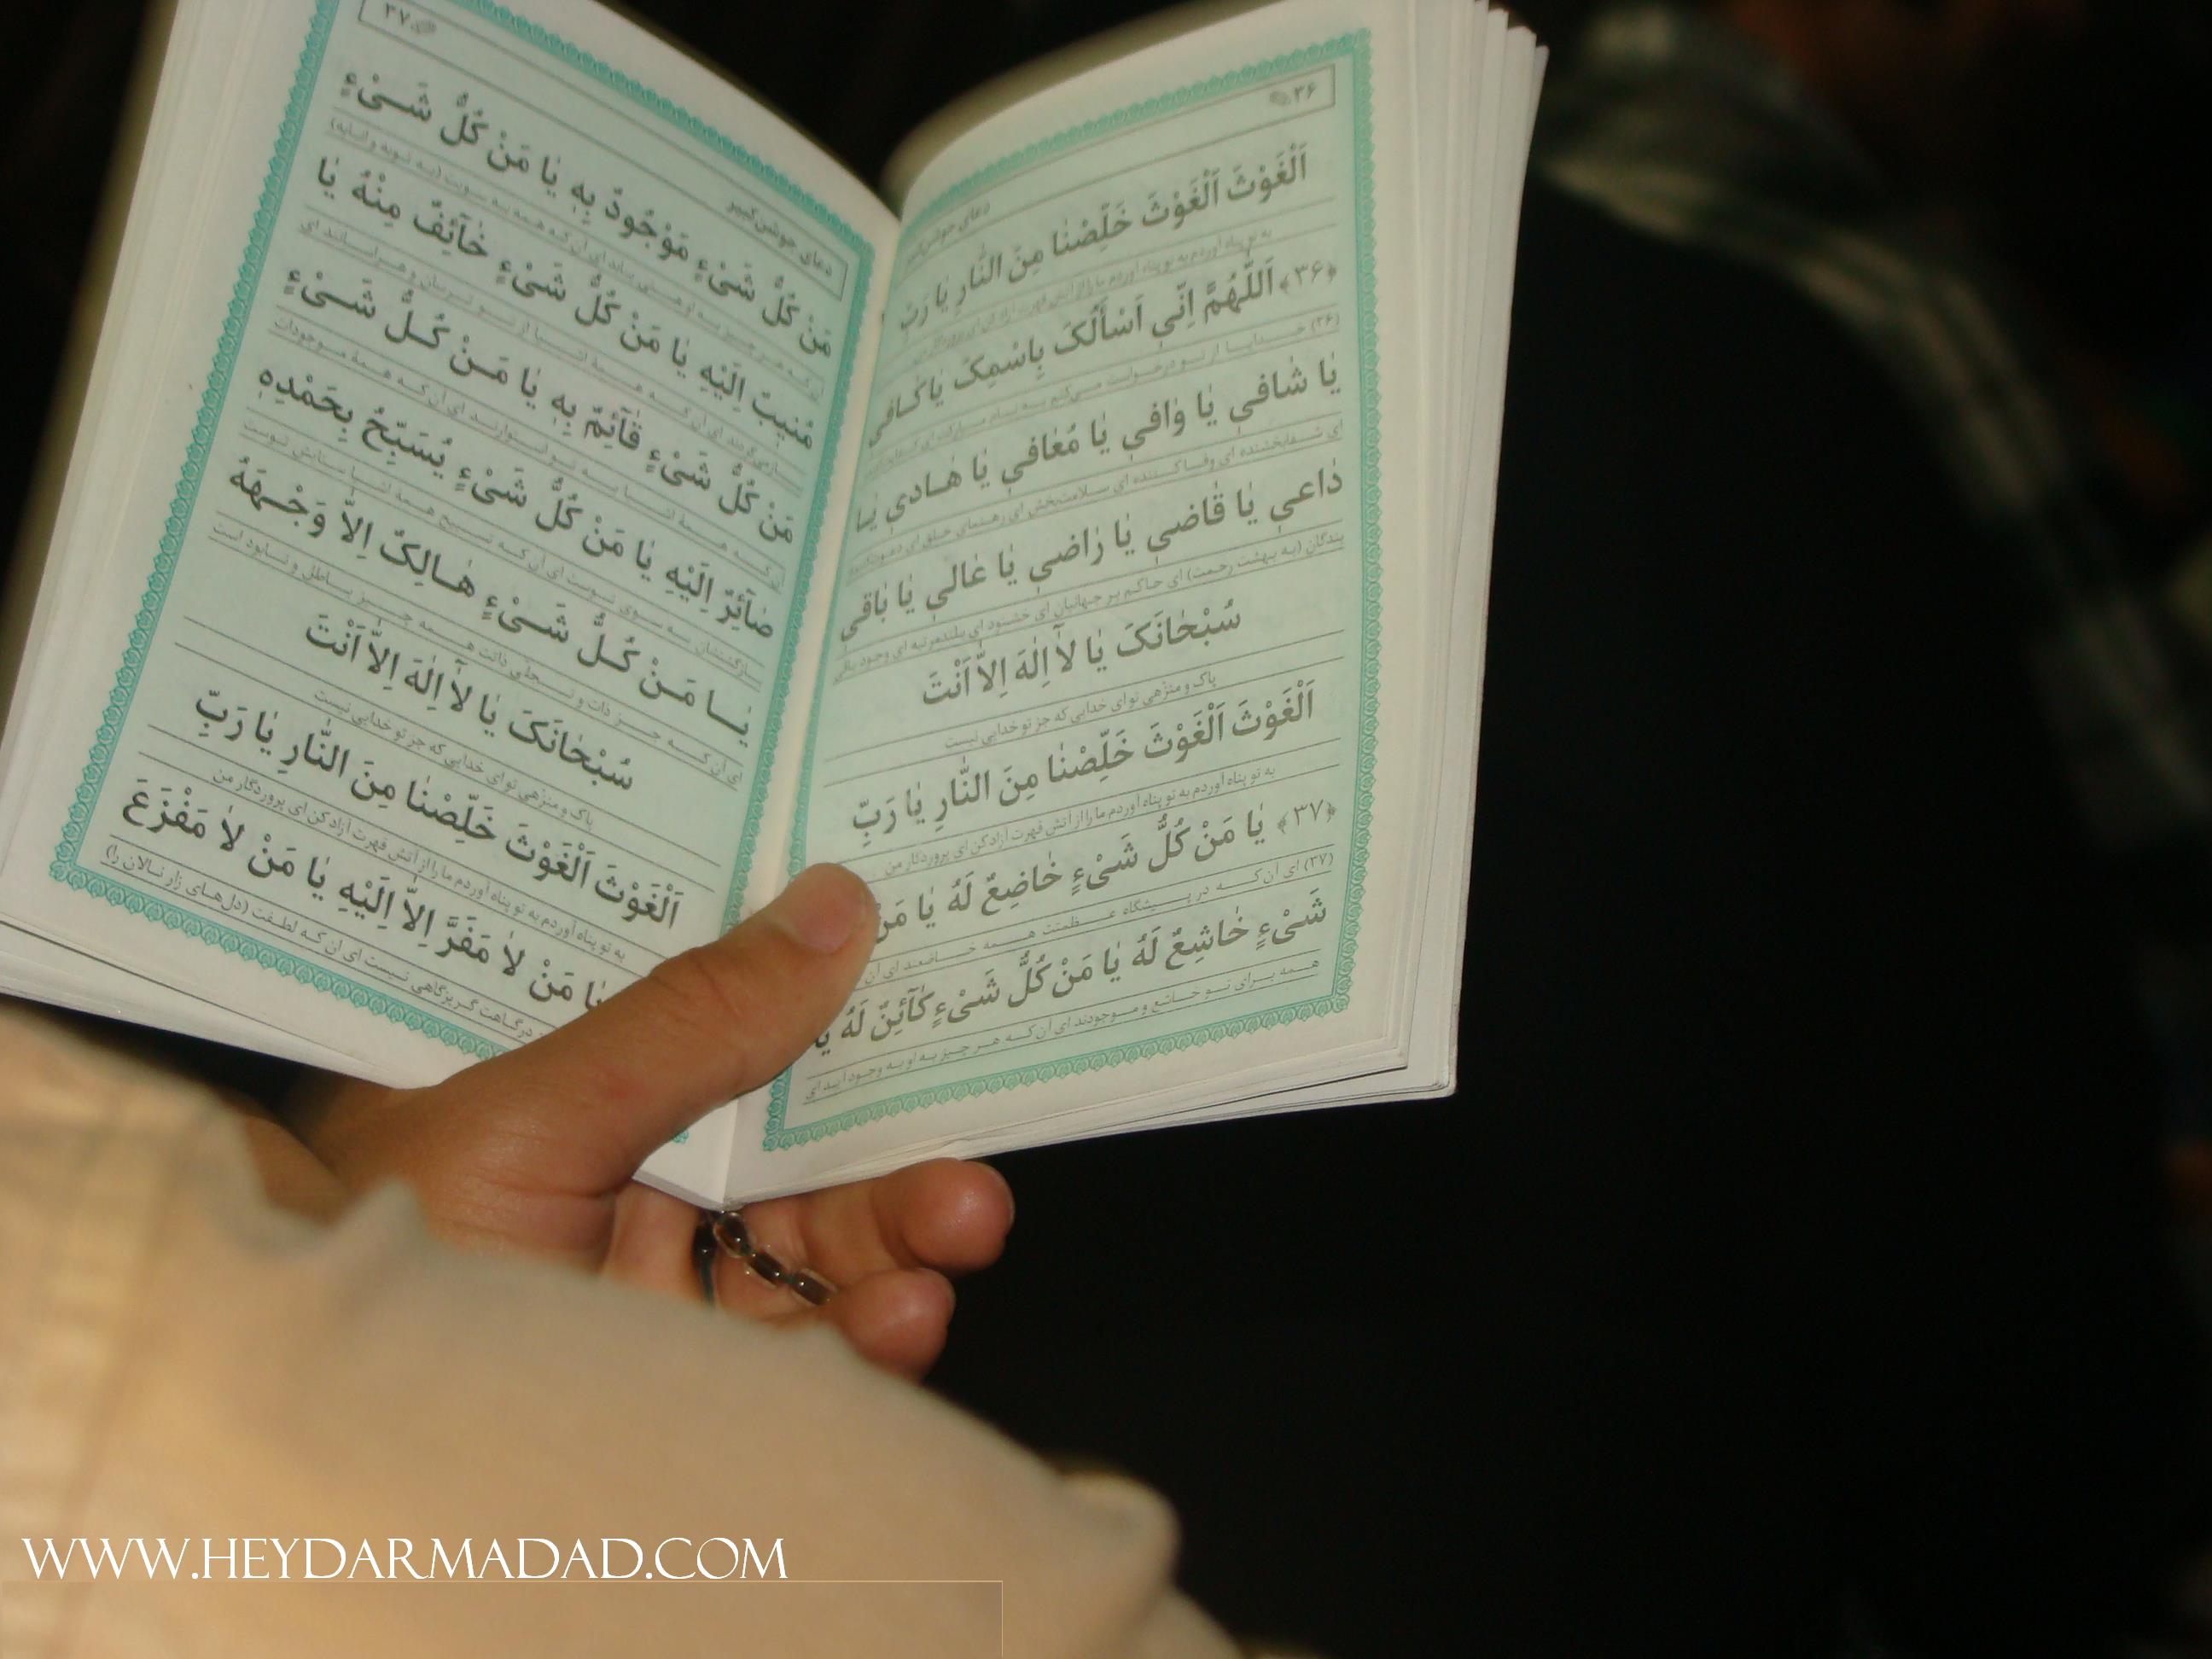 ۳۶
دعای جوشن کبیر
اَلْغَوْثَ اَلْغَوْثَ خَلِّصْنٰا مِنَ النّٰارِ یٰا رَبِّ
به تو پناه آوردم به تو پناه آوردم ما را از آتش قهرت آزاد کن ای پروردگار من
﴿۳۶﴾ اَللّٰهُمَّ اِنّی اَسْأَلُکَ بِاسْمِکَ یٰا کٰافی
(۳۶) خدایا از تو درخواست می‌کنم به نام مبارکت ای
یٰا شٰافی یٰا وٰافی یٰا مُعٰافی یٰا هٰادی یٰا
ای شفابخشنده ای وفاکننده ای سلامت‌بخش ای رهنمای خلق ای
دٰاعی یٰا قٰاضی یٰا رٰاضی یٰا عٰالی یٰا بٰاقی
بندگان (به بهشت رحمت) ای حاکم بر جهانیان ای خشنود ای بلندمرتبه ای وجود باقی
سُبْحٰانَکَ یٰا لٰا اِلٰهَ اِلاّٰ اَنْتَ
پاک و منزّهی تو ای خدایی که جز تو خدایی نیست
اَلْغَوْثَ اَلْغَوْثَ خَلِّصْنٰا مِنَ النّٰارِ یٰا رَبِّ
به تو پناه آوردم به تو پناه آوردم ما را از آتش قهرت آزاد کن ای پروردگار من
﴿۳۷﴾ یٰا مَنْ کُلُّ شَیْءٍ خٰاضِعٌ لَهُ یٰا مَنْ
(۳۷) ای آن‌که در پیشگاه عظمتت همه خاضعند ای آن
شَیْءٍ خٰاشِعٌ لَهُ یٰا مَنْ کُلُّ شَیْءٍ کٰآئِنٌ لَهُ یٰا
همه برای تو خاشع و موجودند ای آن‌که هر چیز به او به وجود آید ای
دعای جوشن کبیر
۳۷
مَنْ کُلُّ شَیْءٍ مَوْجُودٌ بِهِ یٰا مَنْ کُلُّ شَیْءٍ
آن‌که هر چیز به او هستی یابد ای آن‌که همه به سویت (به توبه و انابه)
مُنیبٌ اِلَیْهِ یٰا مَنْ کُلُّ شَیْءٍ خٰآئِفٌ مِنْهُ یٰا
بازمی‌گردند ای آن‌که همهٔ اشیا از تو ترسان و هراسانند ای
مَنْ کُلُّ شَیْءٍ قٰآئِمٌ بِهِ یٰا مَنْ کُلُّ شَیْءٍ
آن‌که همهٔ اشیا به تو استوارند ای آن‌که همهٔ موجودات
صٰآئِرٌ اِلَیْهِ یٰا مَنْ کُلُّ شَیْءٍ یُسَبِّحُ بِحَمْدِهِ
بازگشتشان به سوی توست ای آن‌که تسبیح همهٔ اشیا ستایش توست
یٰا مَنْ کُلُّ شَیْءٍ هٰالِکٌ اِلاّٰ وَجْهَهُ
ای آن‌که جز ذات و تجلی ذاتت همه چیز باطل و نابود است
سُبْحٰانَکَ یٰا لٰا اِلٰهَ اِلاّٰ اَنْتَ
پاک و منزّهی تو ای خدایی که جز تو خدایی نیست
اَلْغَوْثَ اَلْغَوْثَ خَلِّصْنٰا مِنَ النّٰارِ یٰا رَبِّ
به تو پناه آوردم به تو پناه آوردم ما را از آتش قهرت آزاد کن ای پروردگار من
یٰا مَنْ لٰا مَفَرَّ اِلاّٰ اِلَیْهِ یٰا مَنْ لٰا مَفْزَعَ
درگاهت گریزگاهی نیست ای آن که لطفت (دل‌های زار نالان را)
WWW.HEYDARMADAD.COM